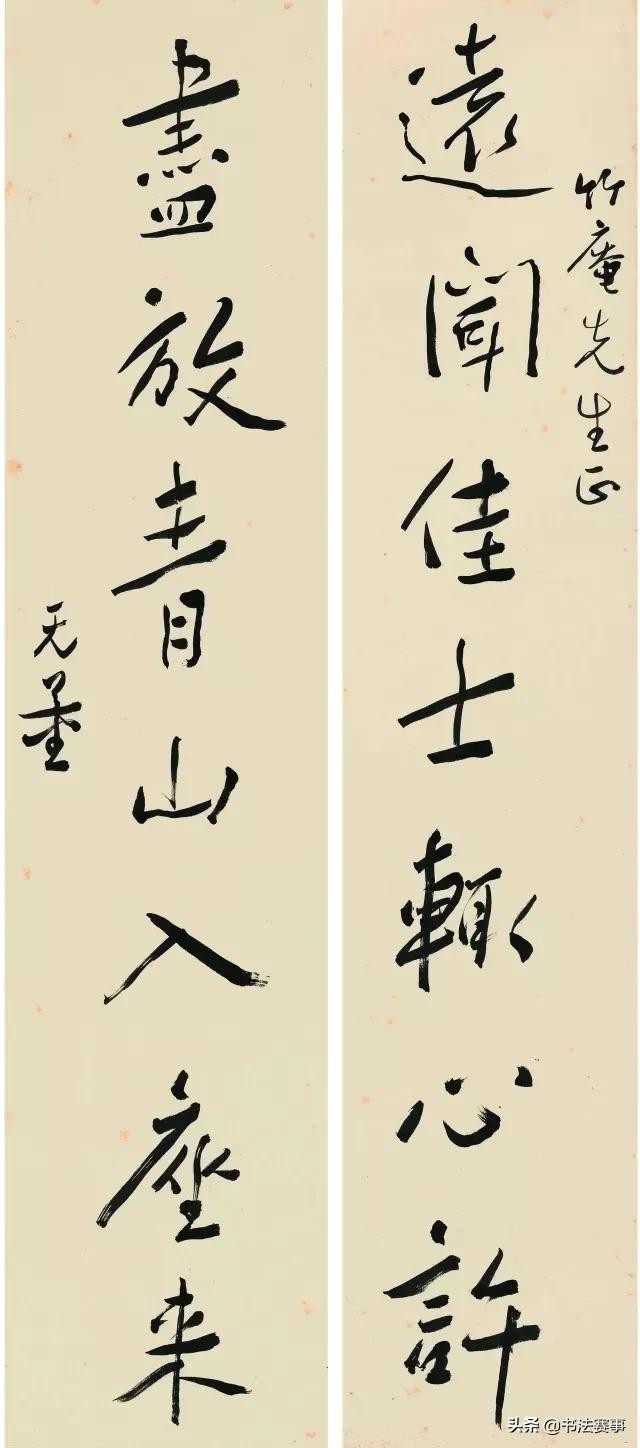 竹庵先生正
遠聞佳士輒心許
盡放青山入座来
无量
头条 @书法赛事